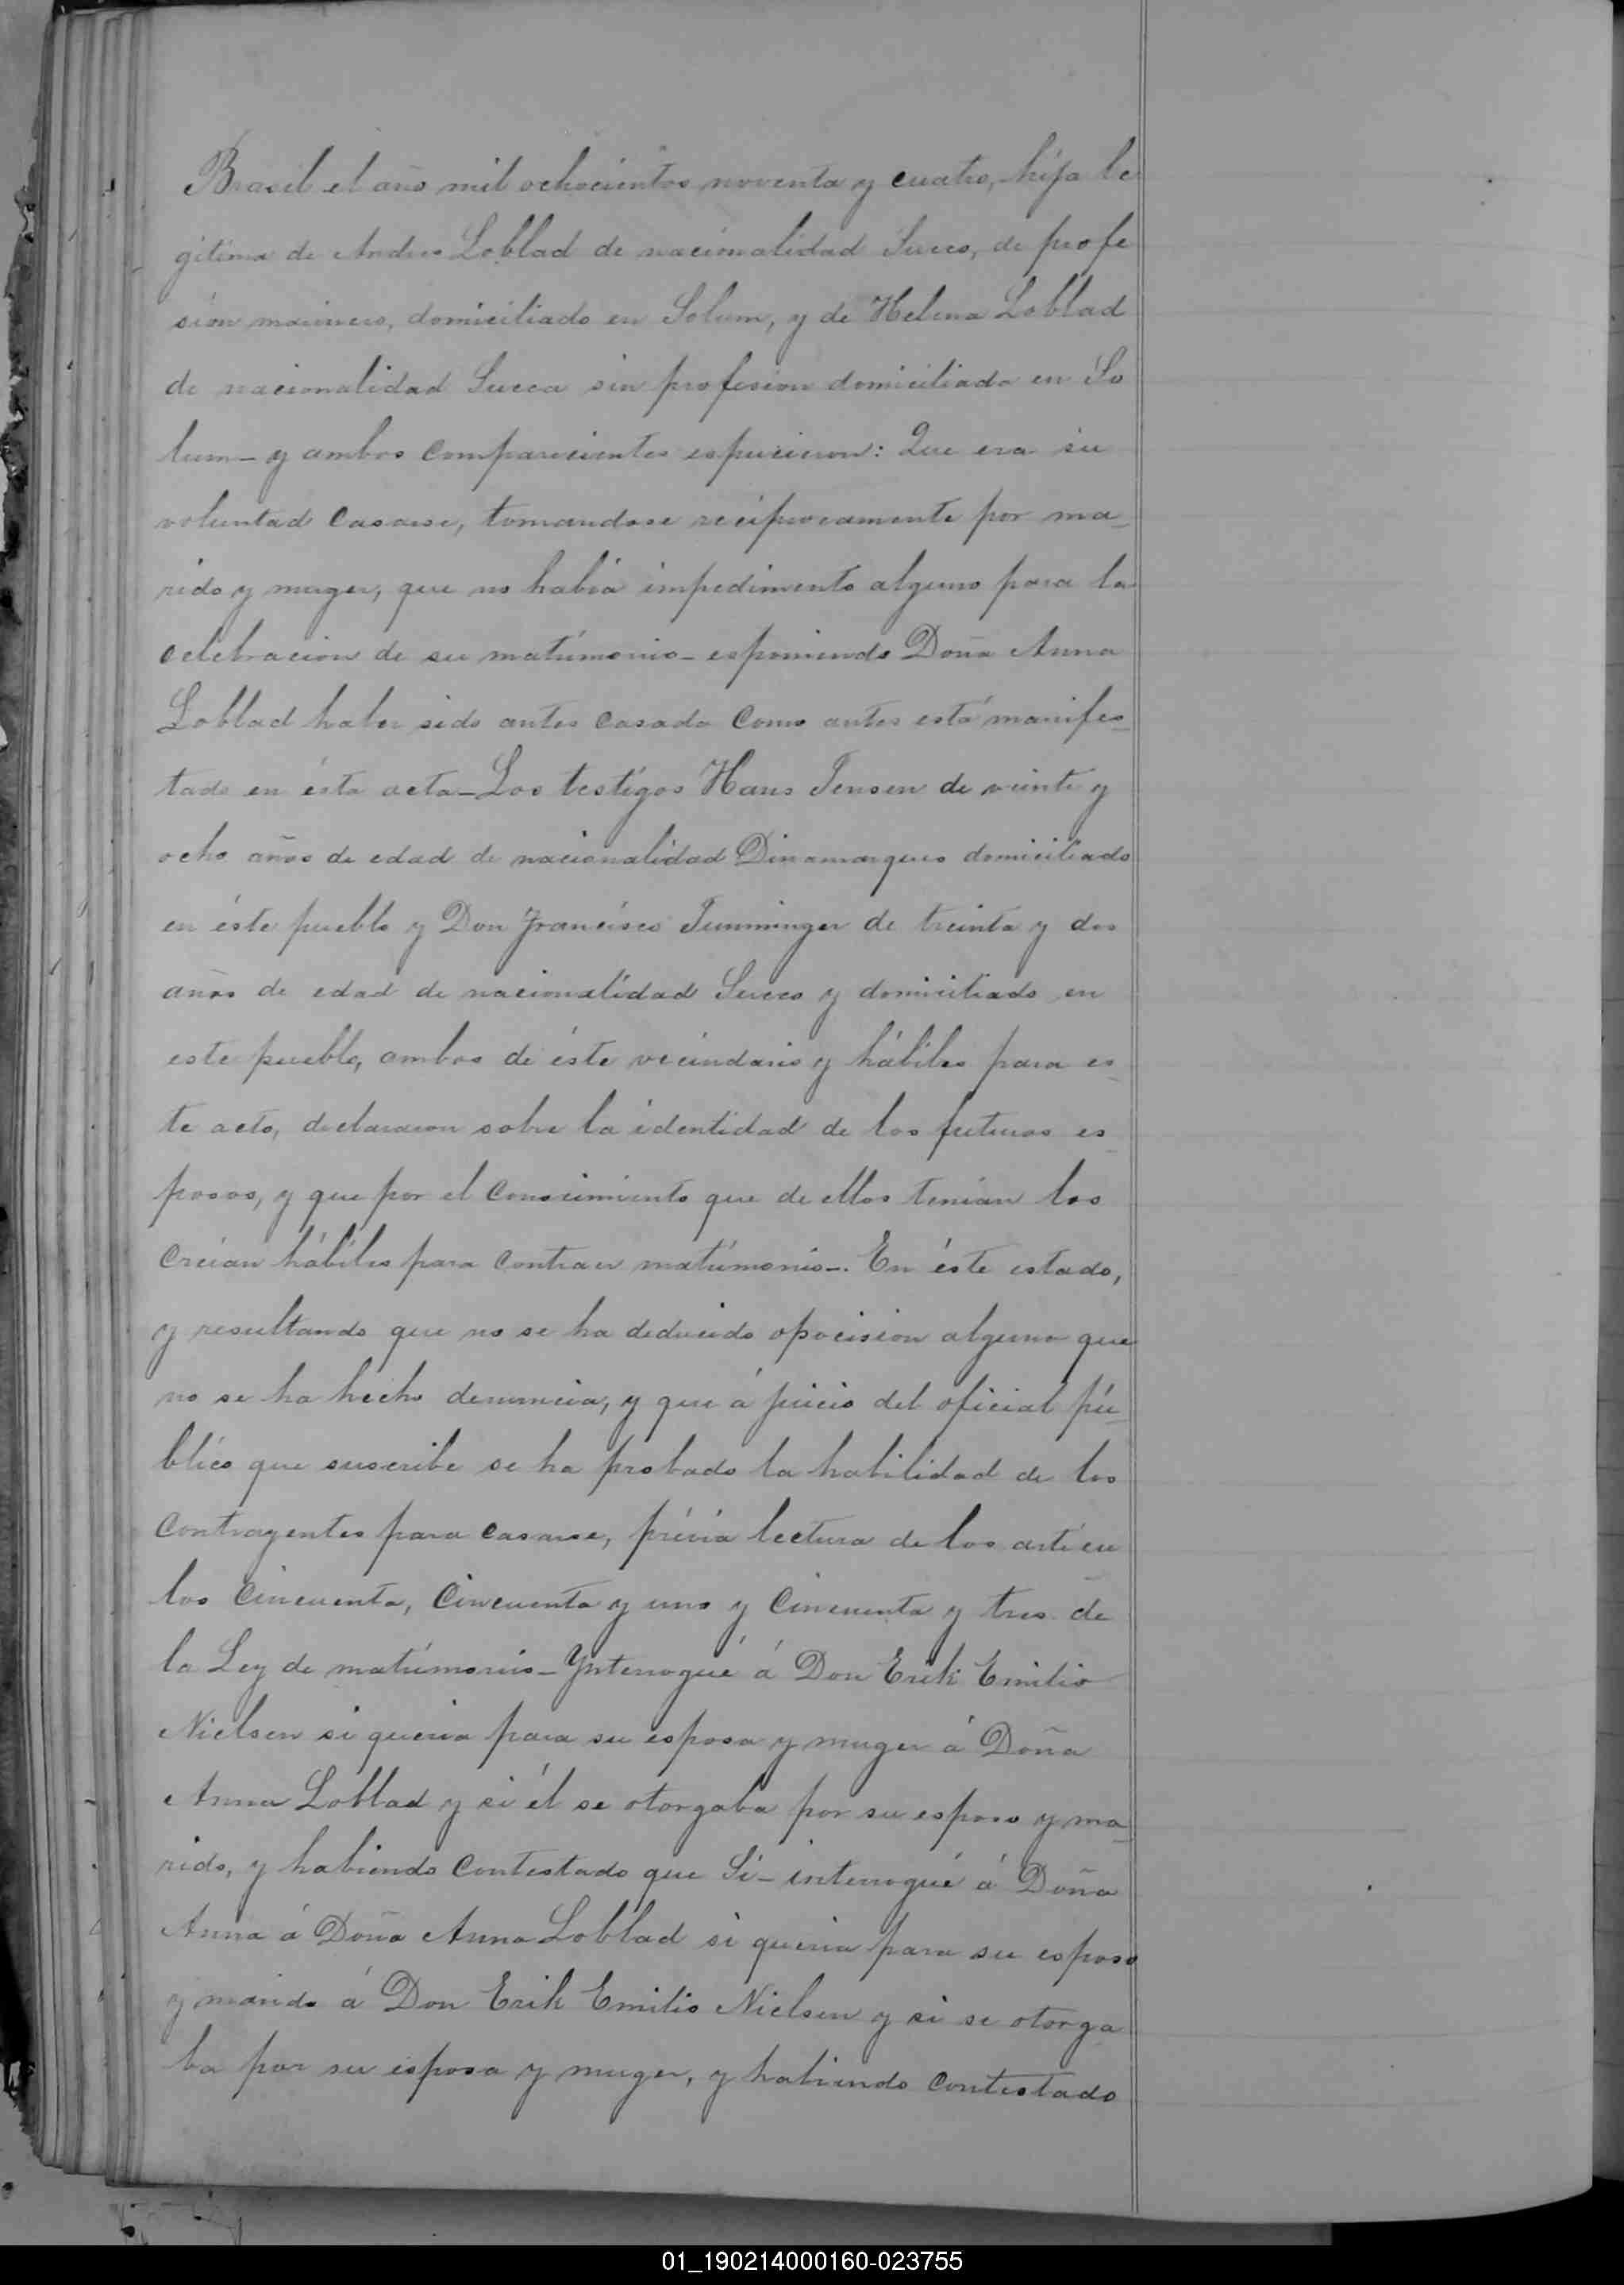 Brasil el año mil ochocientos noventa y cuatro, hija le
gitima de Andres Loblad de nacionalidad Sueco, de profe
sión marinero, domiciliado en Solum, y de Helena Loblad
de nacionalidad Sueca sin profesion domiciliada en So
lum_ y ambos comparecientes espucieron: Que era su
voluntad casarse, tomandose reciprocamente por ma_
rido y muger, que no había impedimento alguno para la
celebracion de su matrimonio_ esponiendo Doña Anna
Loblad haber sido antes casada como antes está manifes_
tado en ésta acta_Los testigos Hans Jensen de veinte y
ocho años de edad de nacionalidad Dinamarques domiciliado
en éste pueblo y Don Francisco de treinta y dos
años de edad de nacionalidad Sueco y domiciliado en
este pueblo, ambos de éste vecindario y hábiles para es_
te acto, declararon sobre la identidad de los futuros es_
posos, y que por el conocimiento que de ellos tenían los
creían hábiles para contraer matrimonio_. En éste estado,
y resultando que no se ha deducido opocision alguna que
no se ha hecho denuncia, y que á juicio del oficial pú_
blico que suscribe se ha probado la habilidad de los
contrayentes para casarse, prévia lectura de los artícu
los cincuenta, cincuenta y uno y cincuenta y tres de
la Ley de matrimonio_Ynterrogué á Don Erik Emilio
Nielsen si queria para su esposa y muger á Doña
Anna Loblad y si él se otorgaba por su esposo y ma_
rido, y habiendo contestado que Sí_ interrogué á Doña
Anna á Doña Anna Loblad si queria para su esposo
y marido á Don Erik Emilio Nielsen y si se otorga
ba por su esposa y muger, y habiendo contestado
01_190214000160-023755